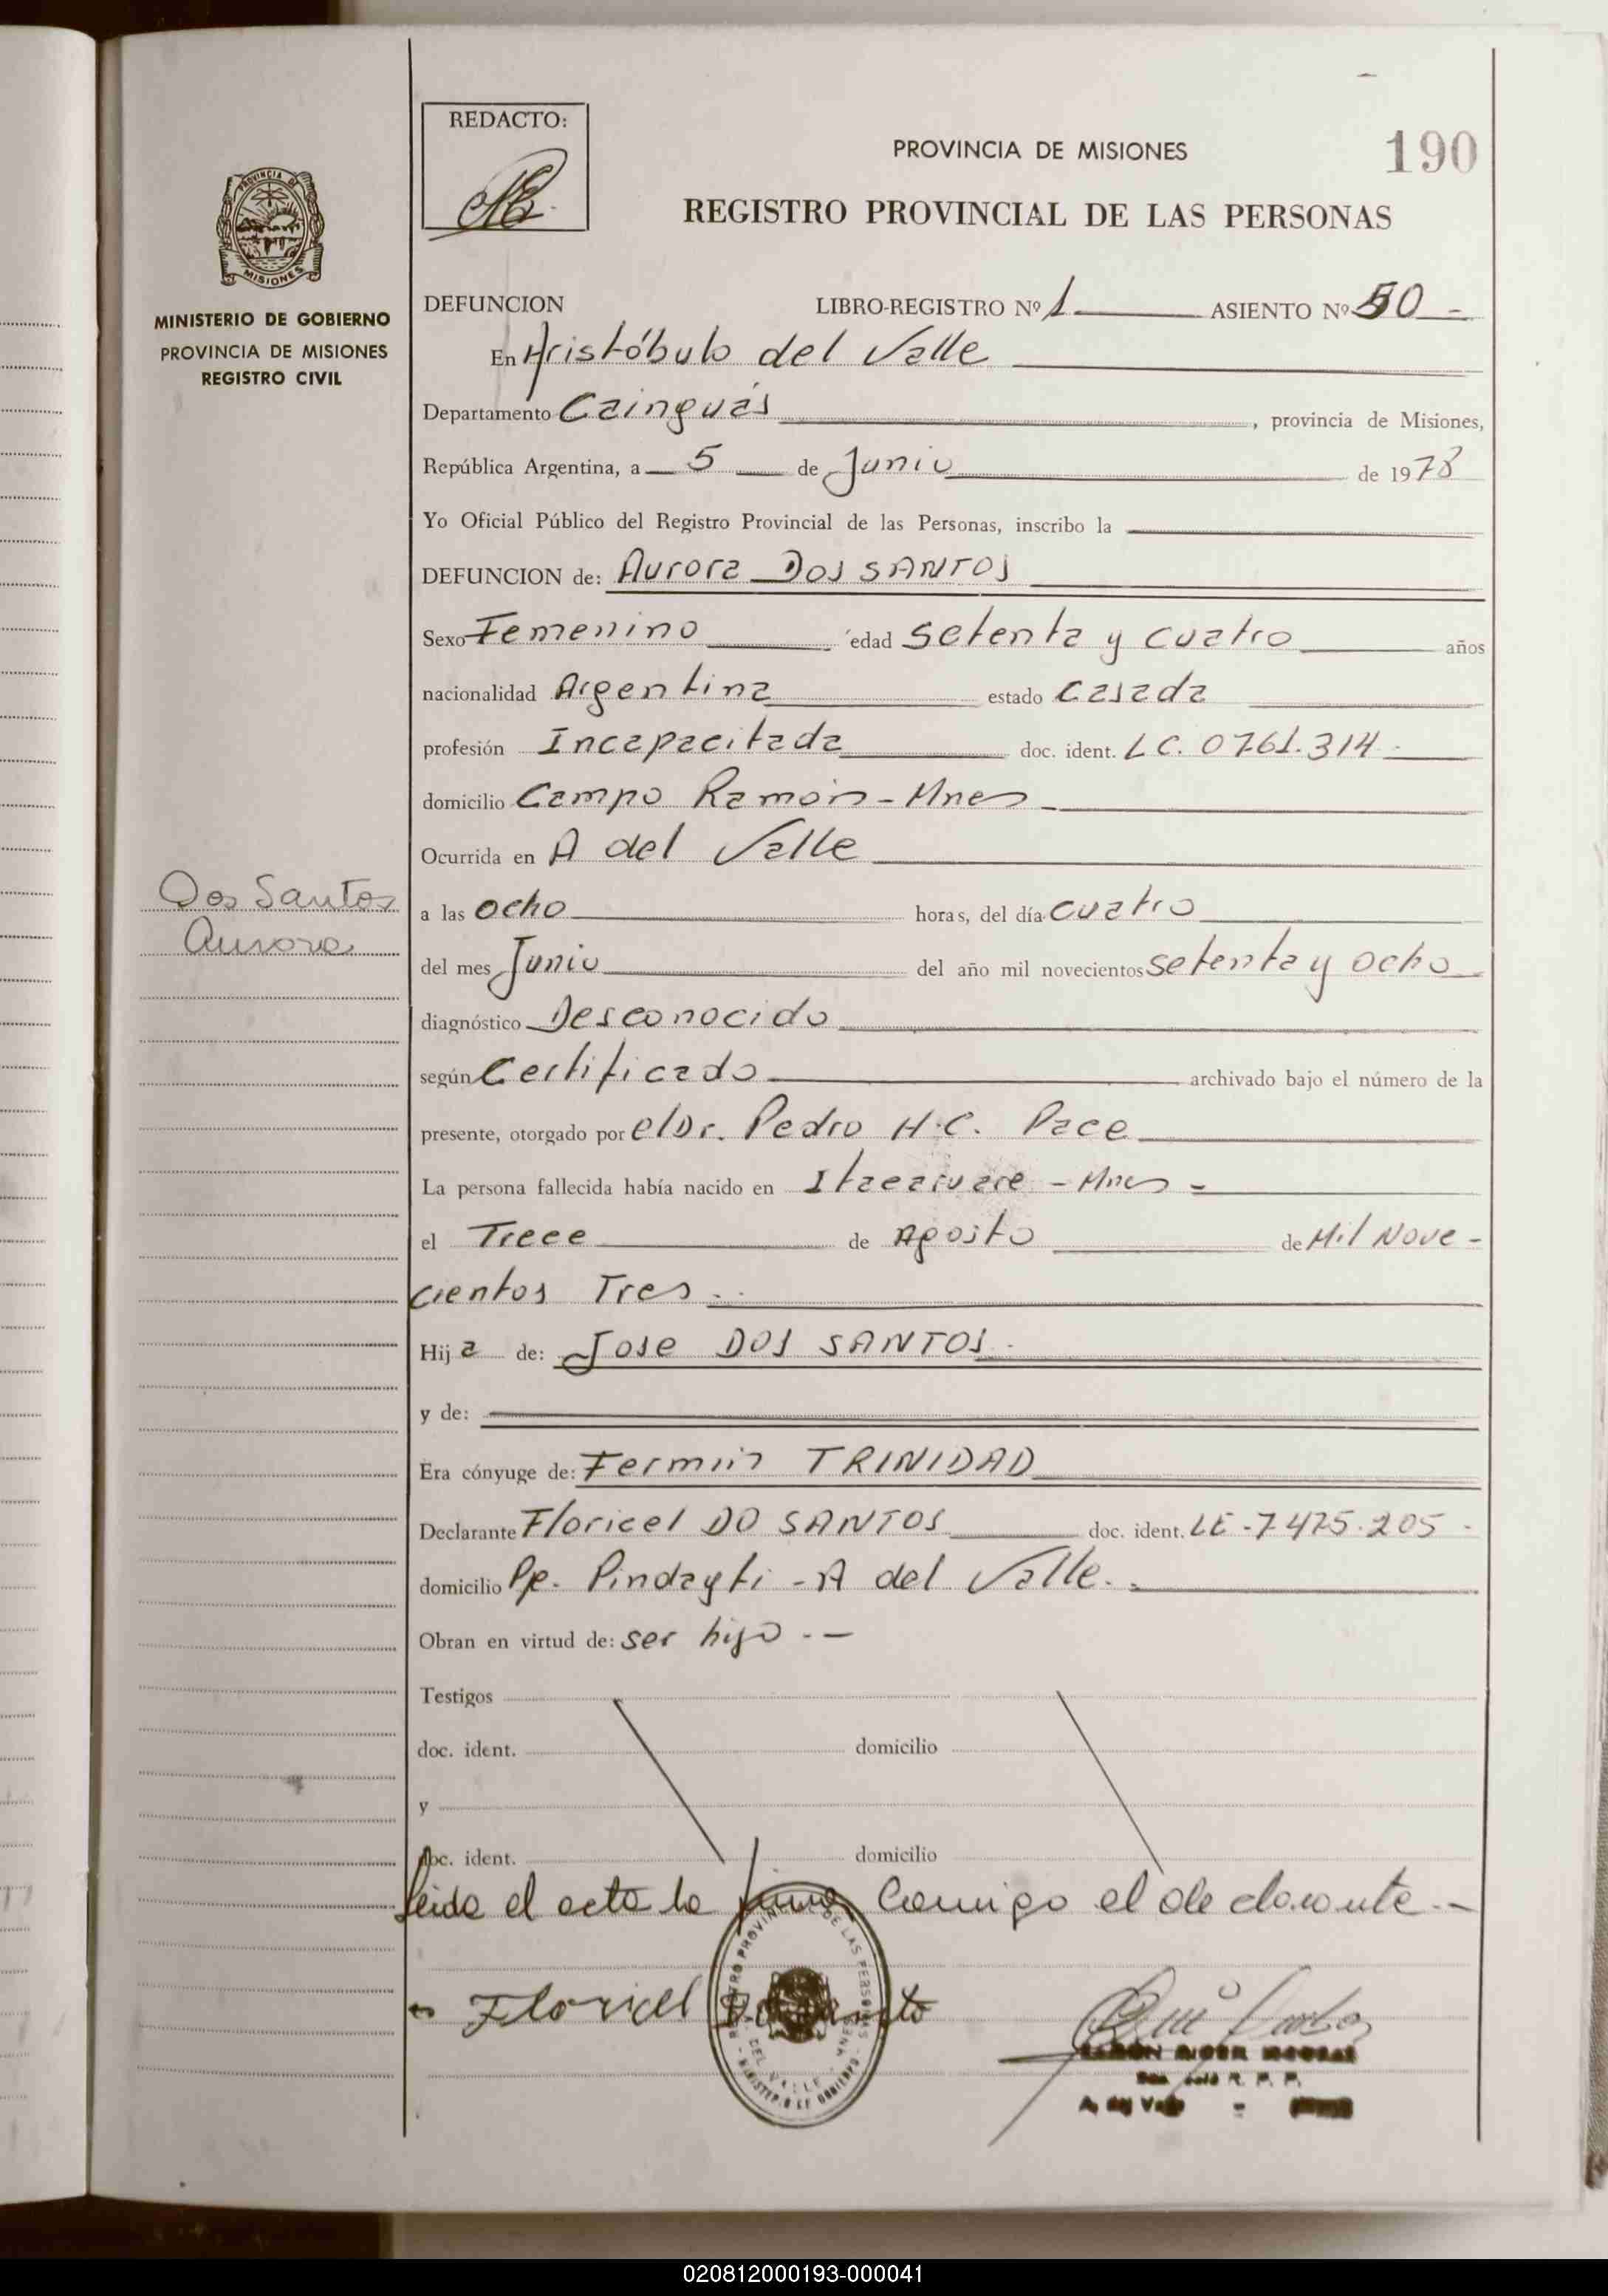 190
REDACTO:
PROVINCIA DE MISIONES
REGISTRO PROVINCIAL DE LAS PERSONAS
PROVINCIA DE
MISIONES
MINISTERIO DE GOBIERNO
PROVINCIA DE MISIONES
REGISTRO CIVIL
Dos Santos
Aurora
DEFUNCION LIBRO-REGISTRO Nº 1 ASIENTO Nº 50 -
En Aristóbulo del Valle
Departamento Cainguás, provincia de Misiones,
República Argentina, a 5 de Junio de 1978
Yo Oficial Público del Registro Provincial de las Personas, inscribo la
DEFUNCION de: Aurora DOS SANTOS
Sexo Femenino edad setenta y cuatro años
nacionalidad Argentina estado Casada
profesión Incapacitada doc. ident. LC. 0761.314 -
domicilio Campo Ramón - Mnes -
Ocurrida en A del Valle
a las ocho horas, del día cuatro
del mes Junio del año mil novecientos setenta y ocho
diagnóstico Desconocido
según Certificado archivado bajo el número de la
presente, otorgado por el Dr. Pedro H.C. Pace
La persona fallecida había nacido en - Mnes -
el Trece de Agosto de Mil Nove -
cientos Tres -.
Hija de: Jose DOS SANTOS -
y de:
Era cónyuge de: Fermin TRINIDAD
Declarante Floricel DO SANTOS doc. ident. LE - 7.475.205 -
domicilio Pje. Pindayti - A del Valle. -
Obran en virtud de: ser hijo . -
Testigos
doc. ident. domicilio
y
doc. ident. domicilio
leida el acta la firma Comigo el declarante. -
REGISTRO PROVINCIAL DE LAS PERSONAS
DEL VALLE - MNES
MINISTERIO DE GOBIERNO
Floricel
R. P. P.
A. del Valle -
020812000193-000041